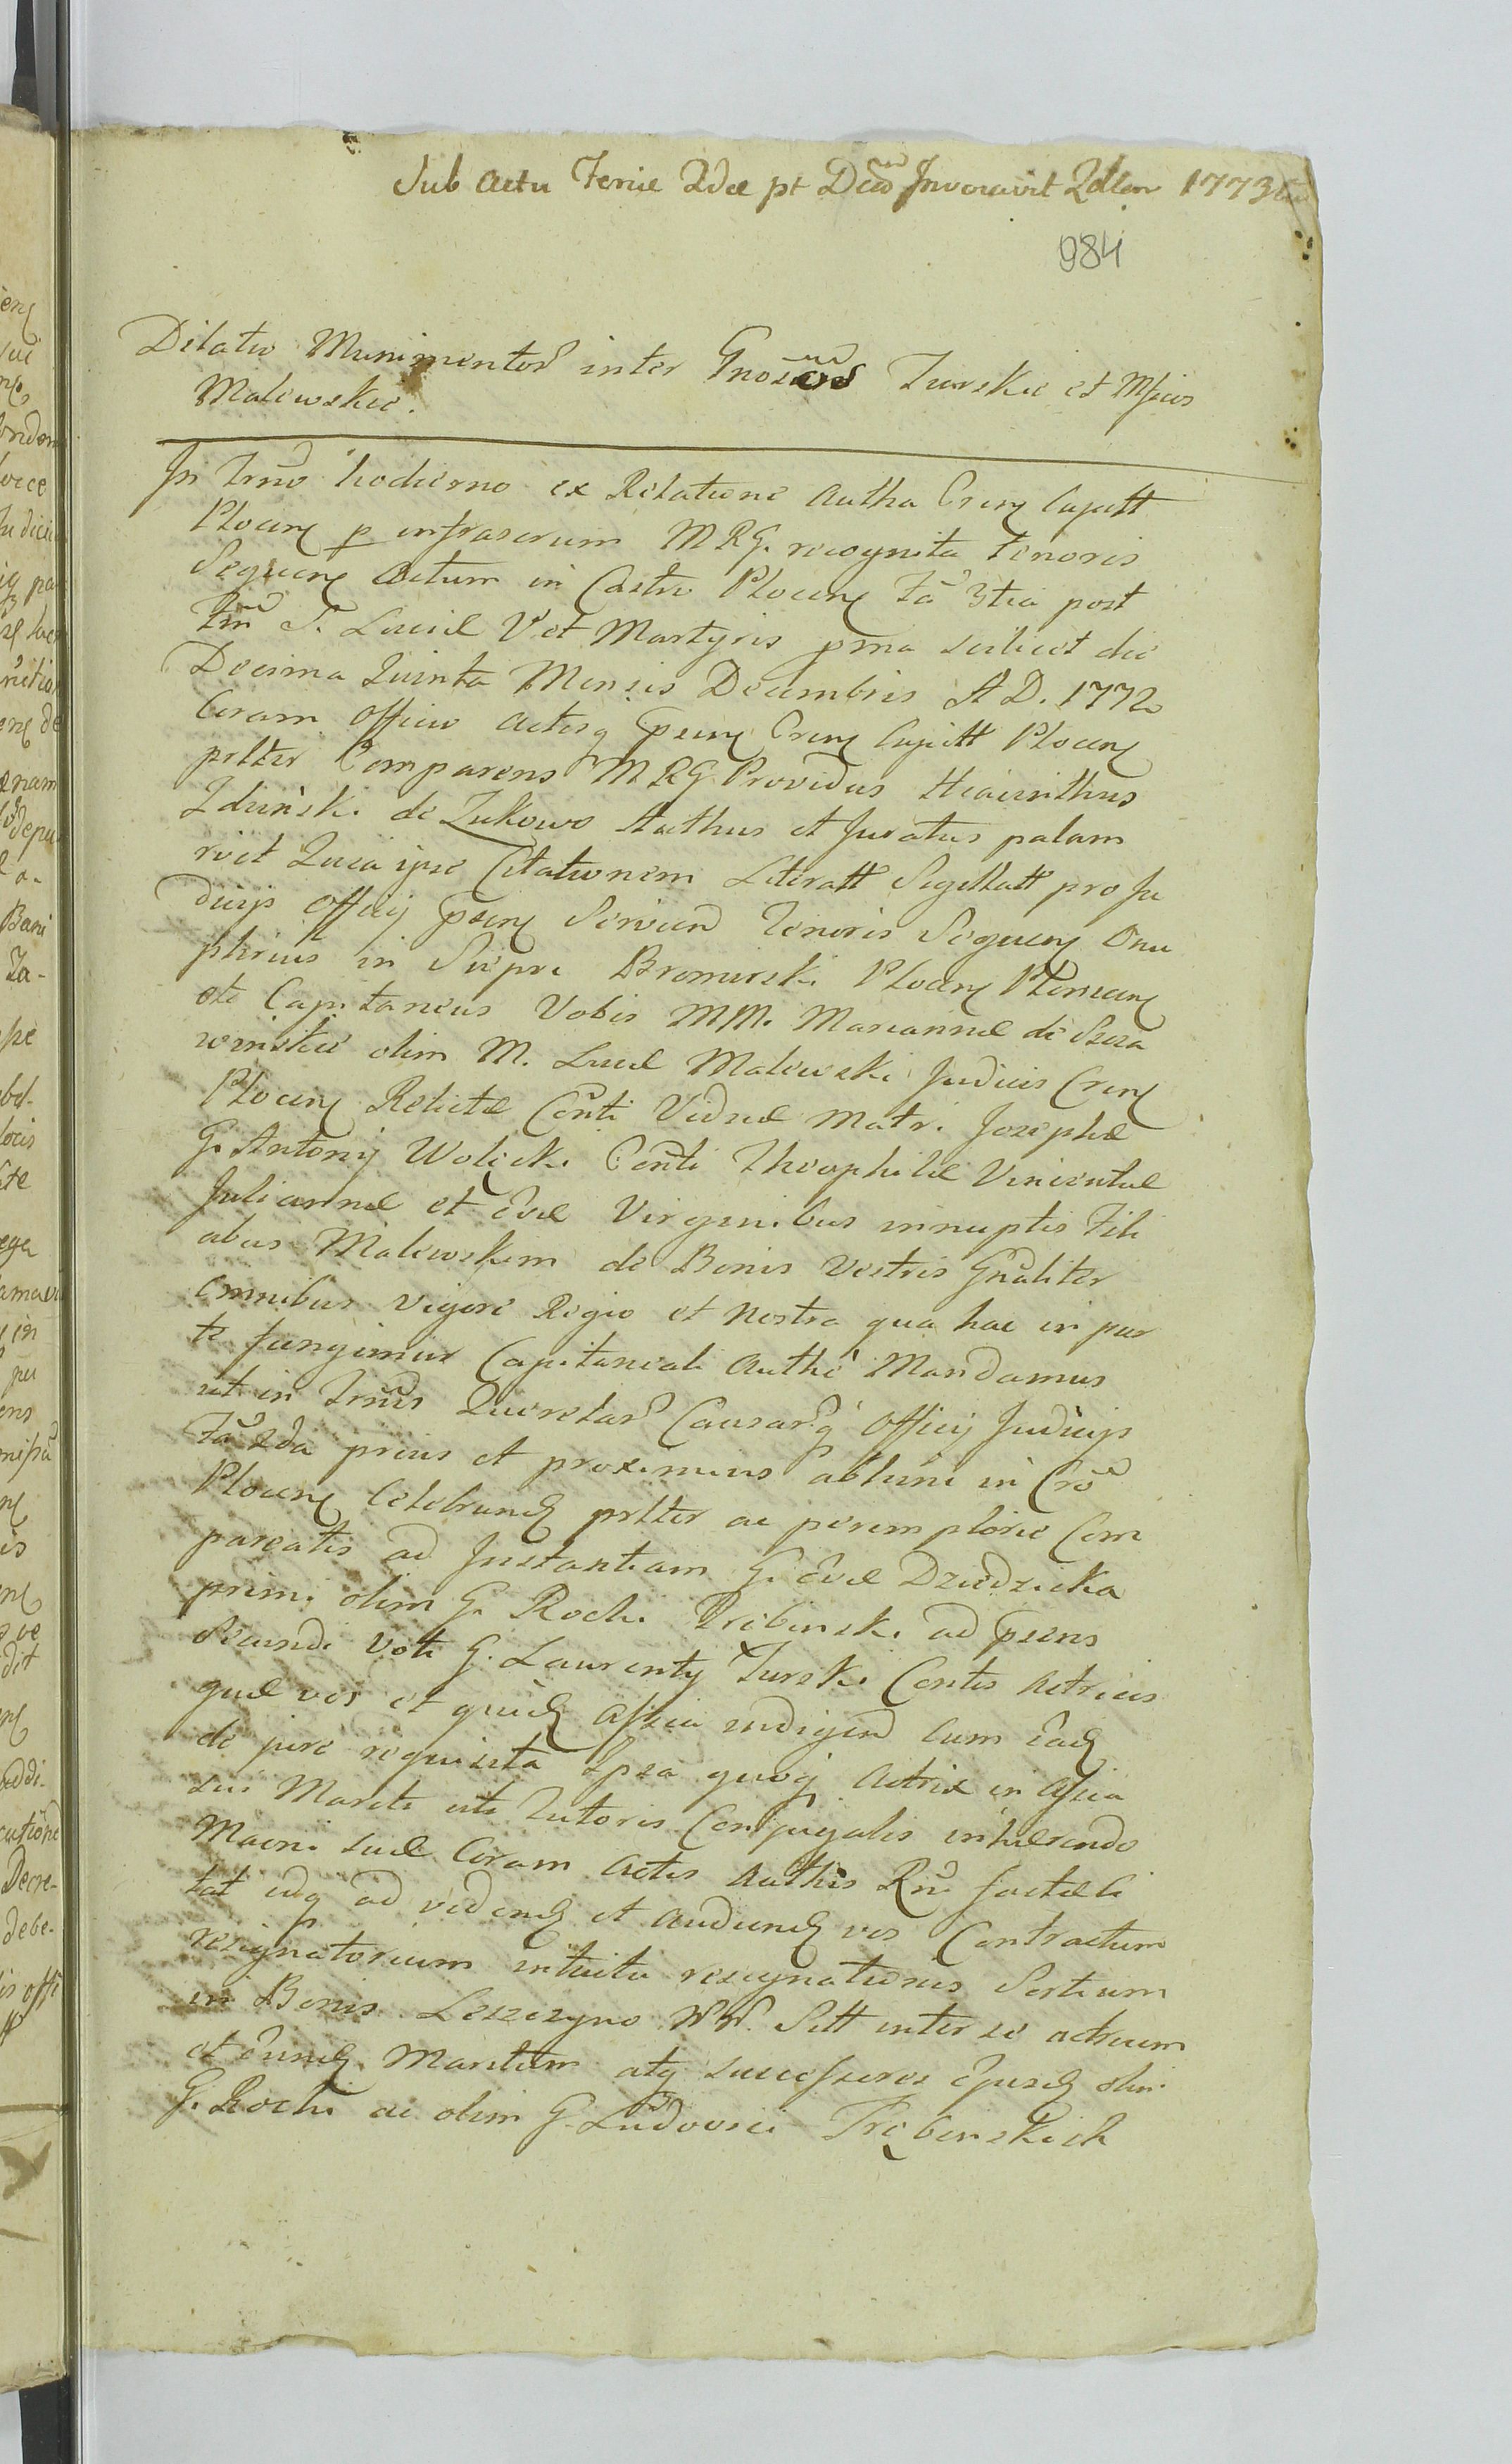 Sub Actu Feriæ 2dæ pt Dcam Invocavit Qdlem 1773tio
984
Dilatio Munimentor inter Gnosos Turskie et Mfcos
Malewskie.
In Trno hodierno ex Relatione Autha Cren Capitt
Plocen p infrascrum MRG. recognita Tenoris
Sequen Actum in Castro Plocen Fa 3tia post
Ftm S. Luciæ V et Martyris pma scilicet die
Decima Quinta Mensis Decembris A D. 1772
Coram Officio Actisq psen Cren Capitt Plocen
prlter Comparens MRG. Providus Hiacinthus
Zduński de Zukowo Authus et Juratus palam
rvit Quia ipse Citationem Literatt Sigillatt pro Ju
dicijs Officij psen Serviend Tenoris Sequen Onu
phrius in Siepre Bromirski Plocen Plonscen
etc Capitaneus Vobis MM. Mariannæ de Szcza
winskie olim M. Lucæ Malewski Judicis Cren
Plocen Relictæ Conti Viduæ Matri Josephæ
G. Antonij Wolicki Conti Theophilæ Vincentæ
Juliannæ et Evæ Virginibus innuptis Fili
abus Malewskim de Bonis Vestris Gnaliter
omnibus vigore Regio et nostra qua hac in par
te fungimur Capitaneali Authe Mandamus
ut in Trnis Querelar Causarq Officij Judicijs
Fa 2da prius et proximius abhinc in Cro
Plocen Celebrand prlter ac peremptorie Com
pareatis ad Instantiam G. Evæ Dziedzicka
primi olim G. Rochi Trębinski ad psens
Secundi Voti G. Laurentij Turski Contis Actricis
quæ vos et quid Assia indigend cum Ead
de jure requisita Ipsa quoq Actrix in Assia
sui Mariti uti Tutoris Conjugalis inhærendo
Maoni suæ Coram Actis Authis Rne factæ Ci
tat idq ad vidend et audiend vos Contractum
resignatorium intuitu resignationis Sortium
in Bonis Leszczyno NN. Sitt inter se actricem
et Eund Maritum atq successores Ejusd olim
G. Rochi ac olim G. Ludovici Trębinskich